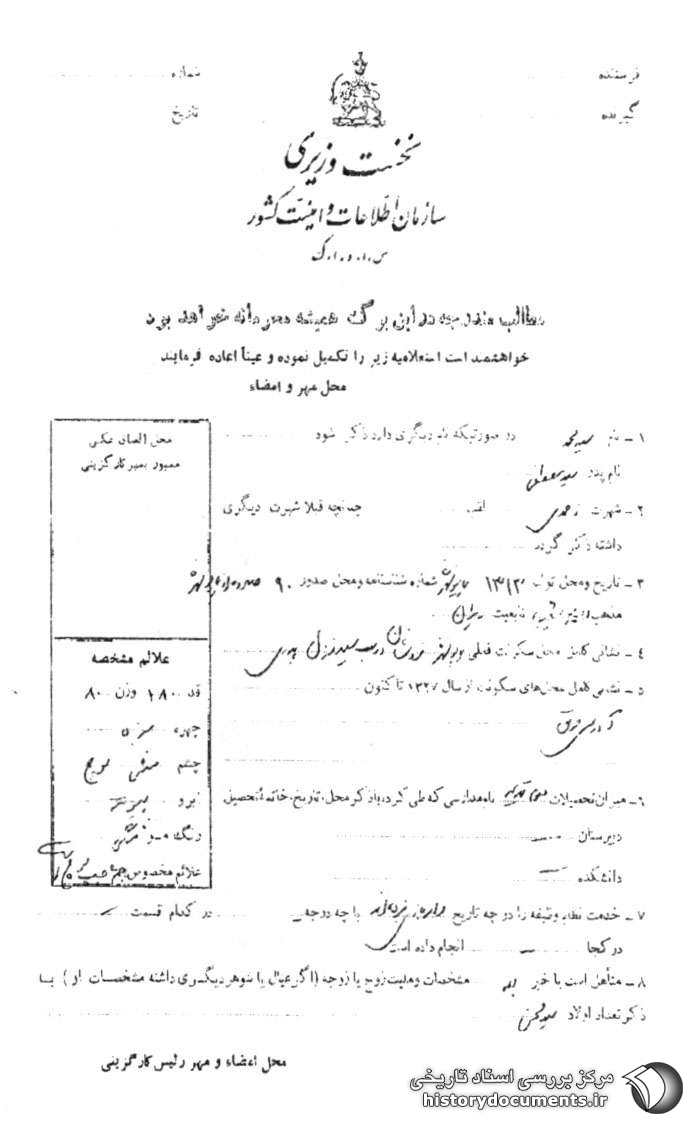 فرستنده
شماره
گیرنده
تاریخ
نخست وزیری
سازمان اطلاعات و امنیت کشور
س.ا.و.ا.ک
مطالب مندرجه در این برگ همیشه محرمانه خواهد بود
خواهشمند است استعلامیه زیر را تکمیل نموده و عیناً اعاده فرمایند
محل مهر و امضاء
محل الصاق عکس
ممهور بمهر کارگزینی
۱ - نام سید محمد در صورتیکه نام دیگری دارد ذکر شود
نام پدر سید مصطفی
۲ - شهرت لقب چنانچه قبلا شهرت دیگری
داشته ذکر گردد
۳ - تاریخ و محل تولد ۱۳۱۳ شماره شناسنامه و محل صدور ۹۰ صادره از
مذهب تابعیت ایران
۴ - نشانی کامل محل سکونت فعلی
۵ - نشانی کامل محل‌های سکونت از سال ۱۳۲۷ تا کنون
آدرس فوق
۶ - میزان تحصیلات نام مدارسی که طی کرده، با ذکر محل، تاریخ، خاتمه تحصیل
دبیرستان
دانشکده
۷ - خدمت نظام وظیفه را در چه تاریخ با چه درجه در کدام قسمت
در کجا انجام داده است
۸ - متأهل است یا خیر بله مشخصات و ملیت زوج یا زوجه (اگر عیال یا شوهر دیگری داشته مشخصات او) با
ذکر تعداد اولاد
علائم مشخصه
قد ۱۸۰ وزن ۸۰
چهره سبزه
چشم
ابرو پیوسته
رنگ مو مشکی
علائم مخصوص
محل امضاء و مهر رئیس کارگزینی
مرکز بررسی اسناد تاریخی
historydocuments.ir